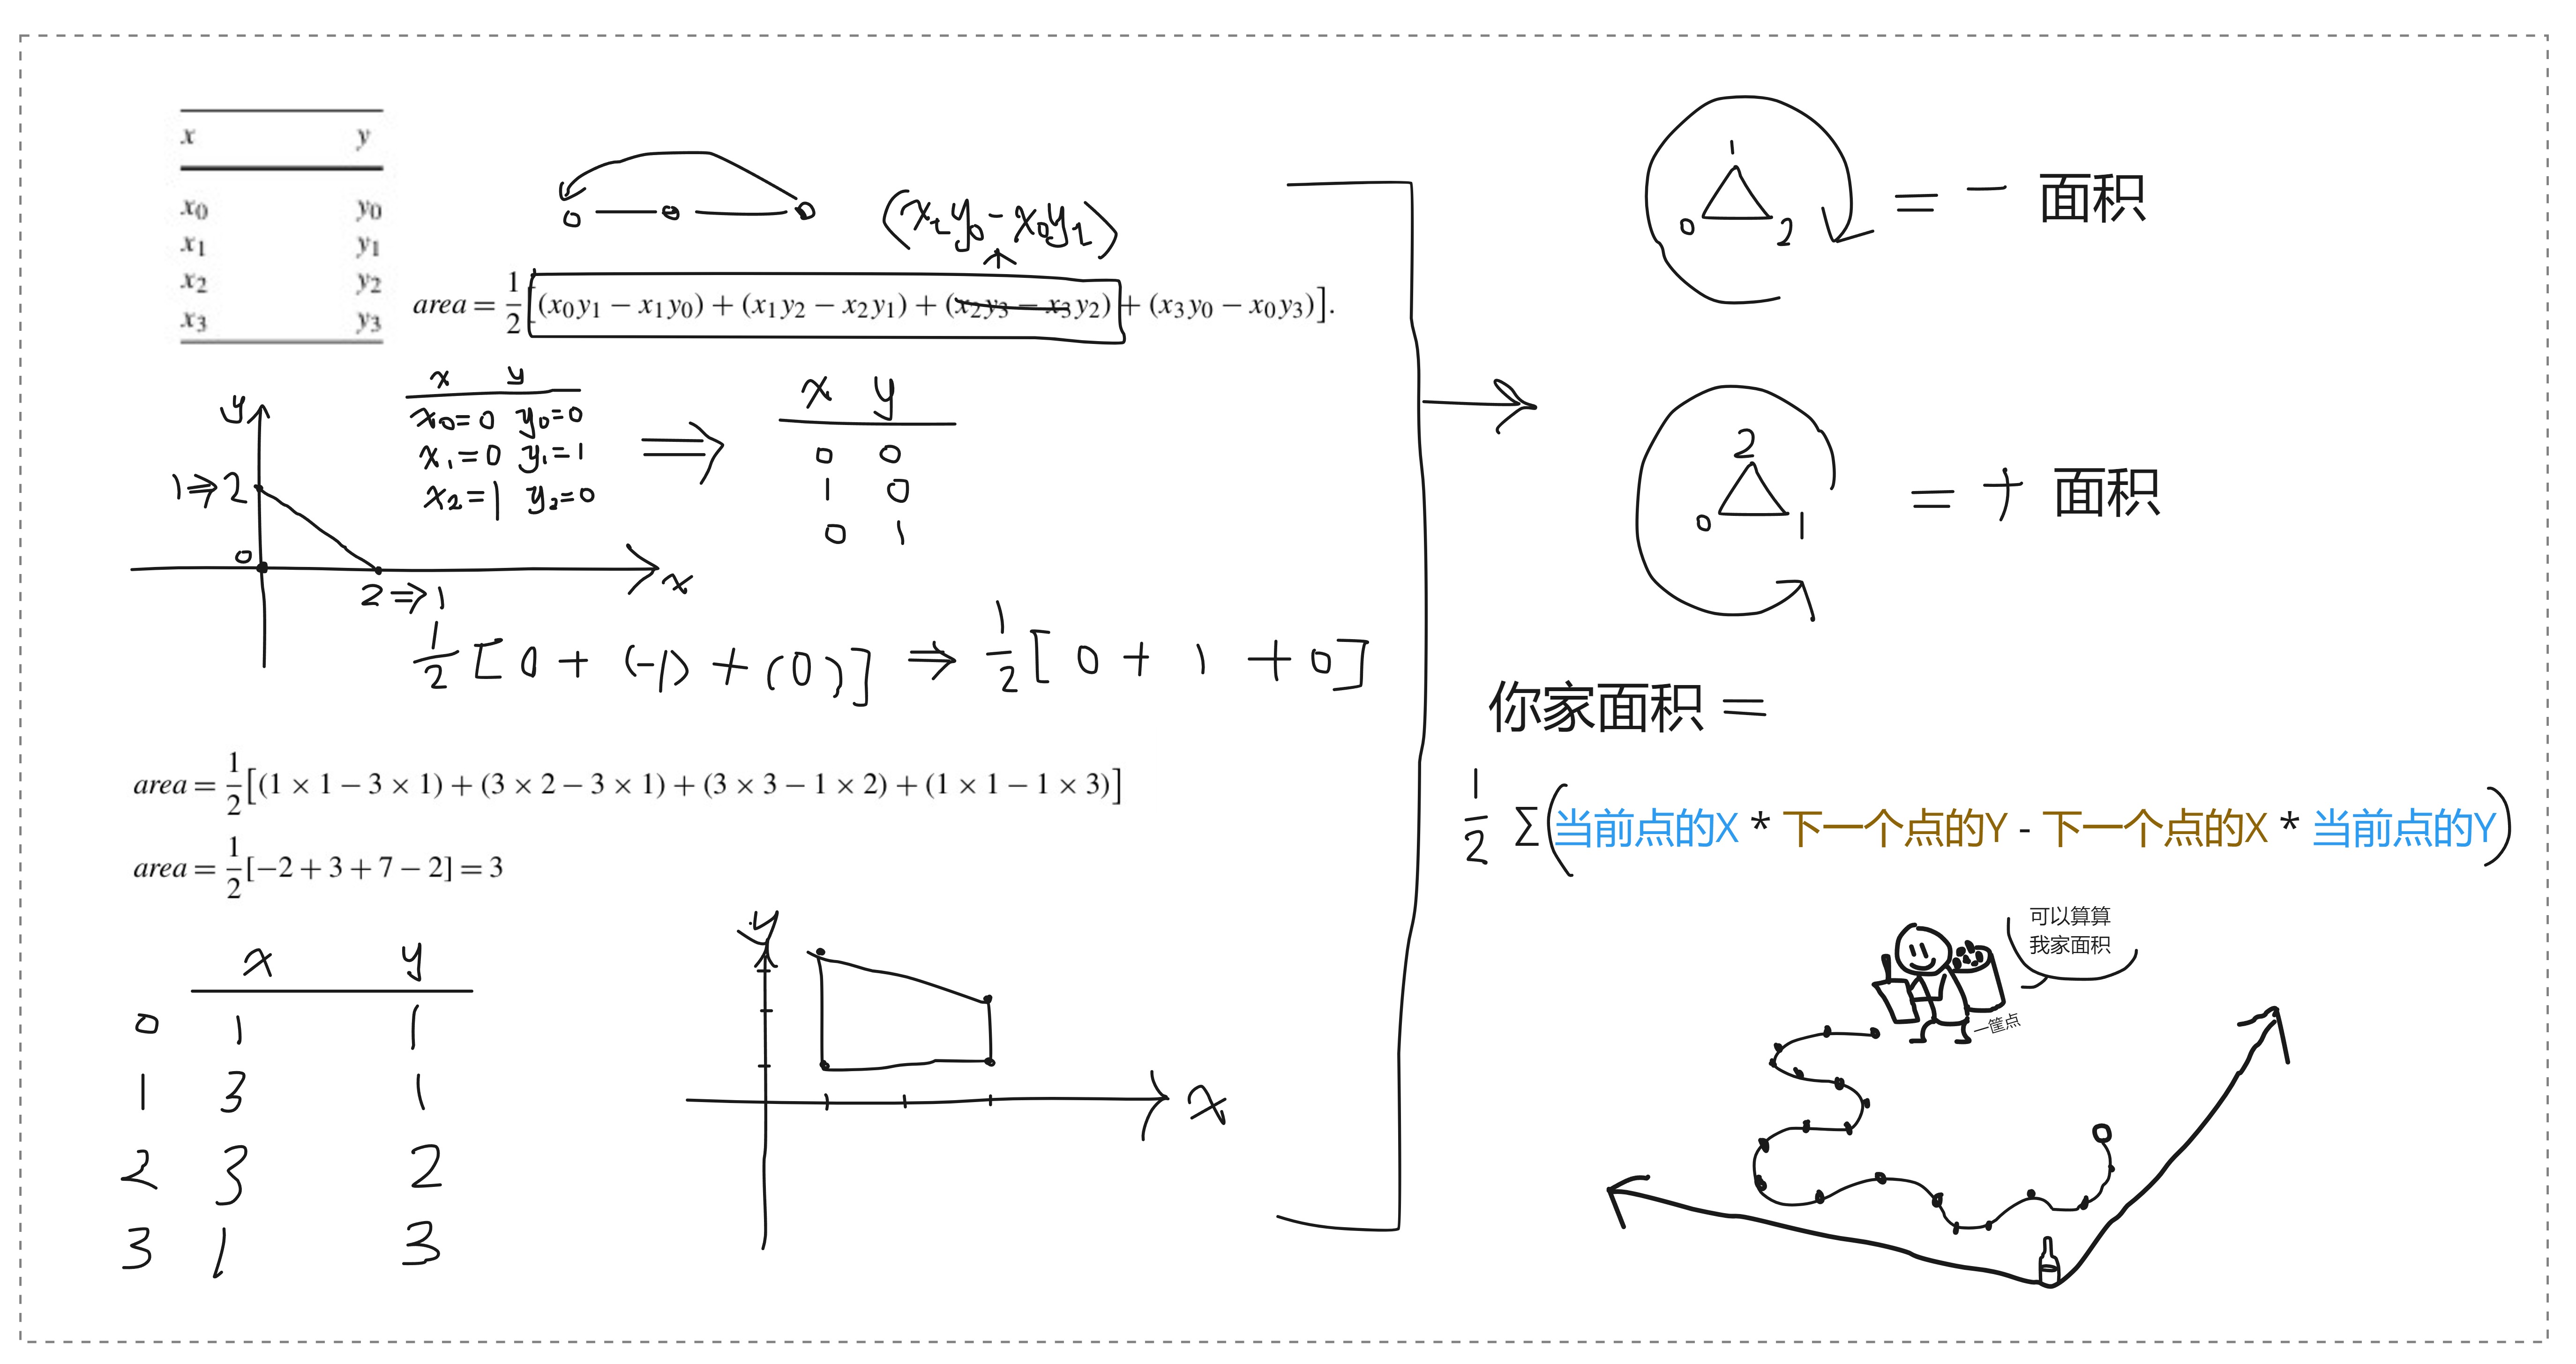 x y
x0 y0
x1 y1
x2 y2
x3 y3
(x2y0 - x0y2)
area = 1/2[(x0y1 − x1y0) + (x1y2 − x2y1) + (x2y3 − x3y2) + (x3y0 − x0y3)].
y
1⇒2
0
2⇒1
x
x y
x0=0 y0=0
x1=0 y1=1
x2=1 y2=0
⇒
x y
0 0
1 0
0 1
1/2[0 + (-1) + (0)] ⇒ 1/2[0 + 1 + 0]
area = 1/2[(1 × 1 − 3 × 1) + (3 × 2 − 3 × 1) + (3 × 3 − 1 × 2) + (1 × 1 − 1 × 3)]
area = 1/2[−2 + 3 + 7 − 2] = 3
x y
0 1 1
1 3 1
2 3 2
3 1 3
y
x
1
0 2
= - 面积
2
0 1
= + 面积
你家面积 =
1/2 Σ(当前点的X * 下一个点的Y - 下一个点的X * 当前点的Y)
可以算算
我家面积
一筐点